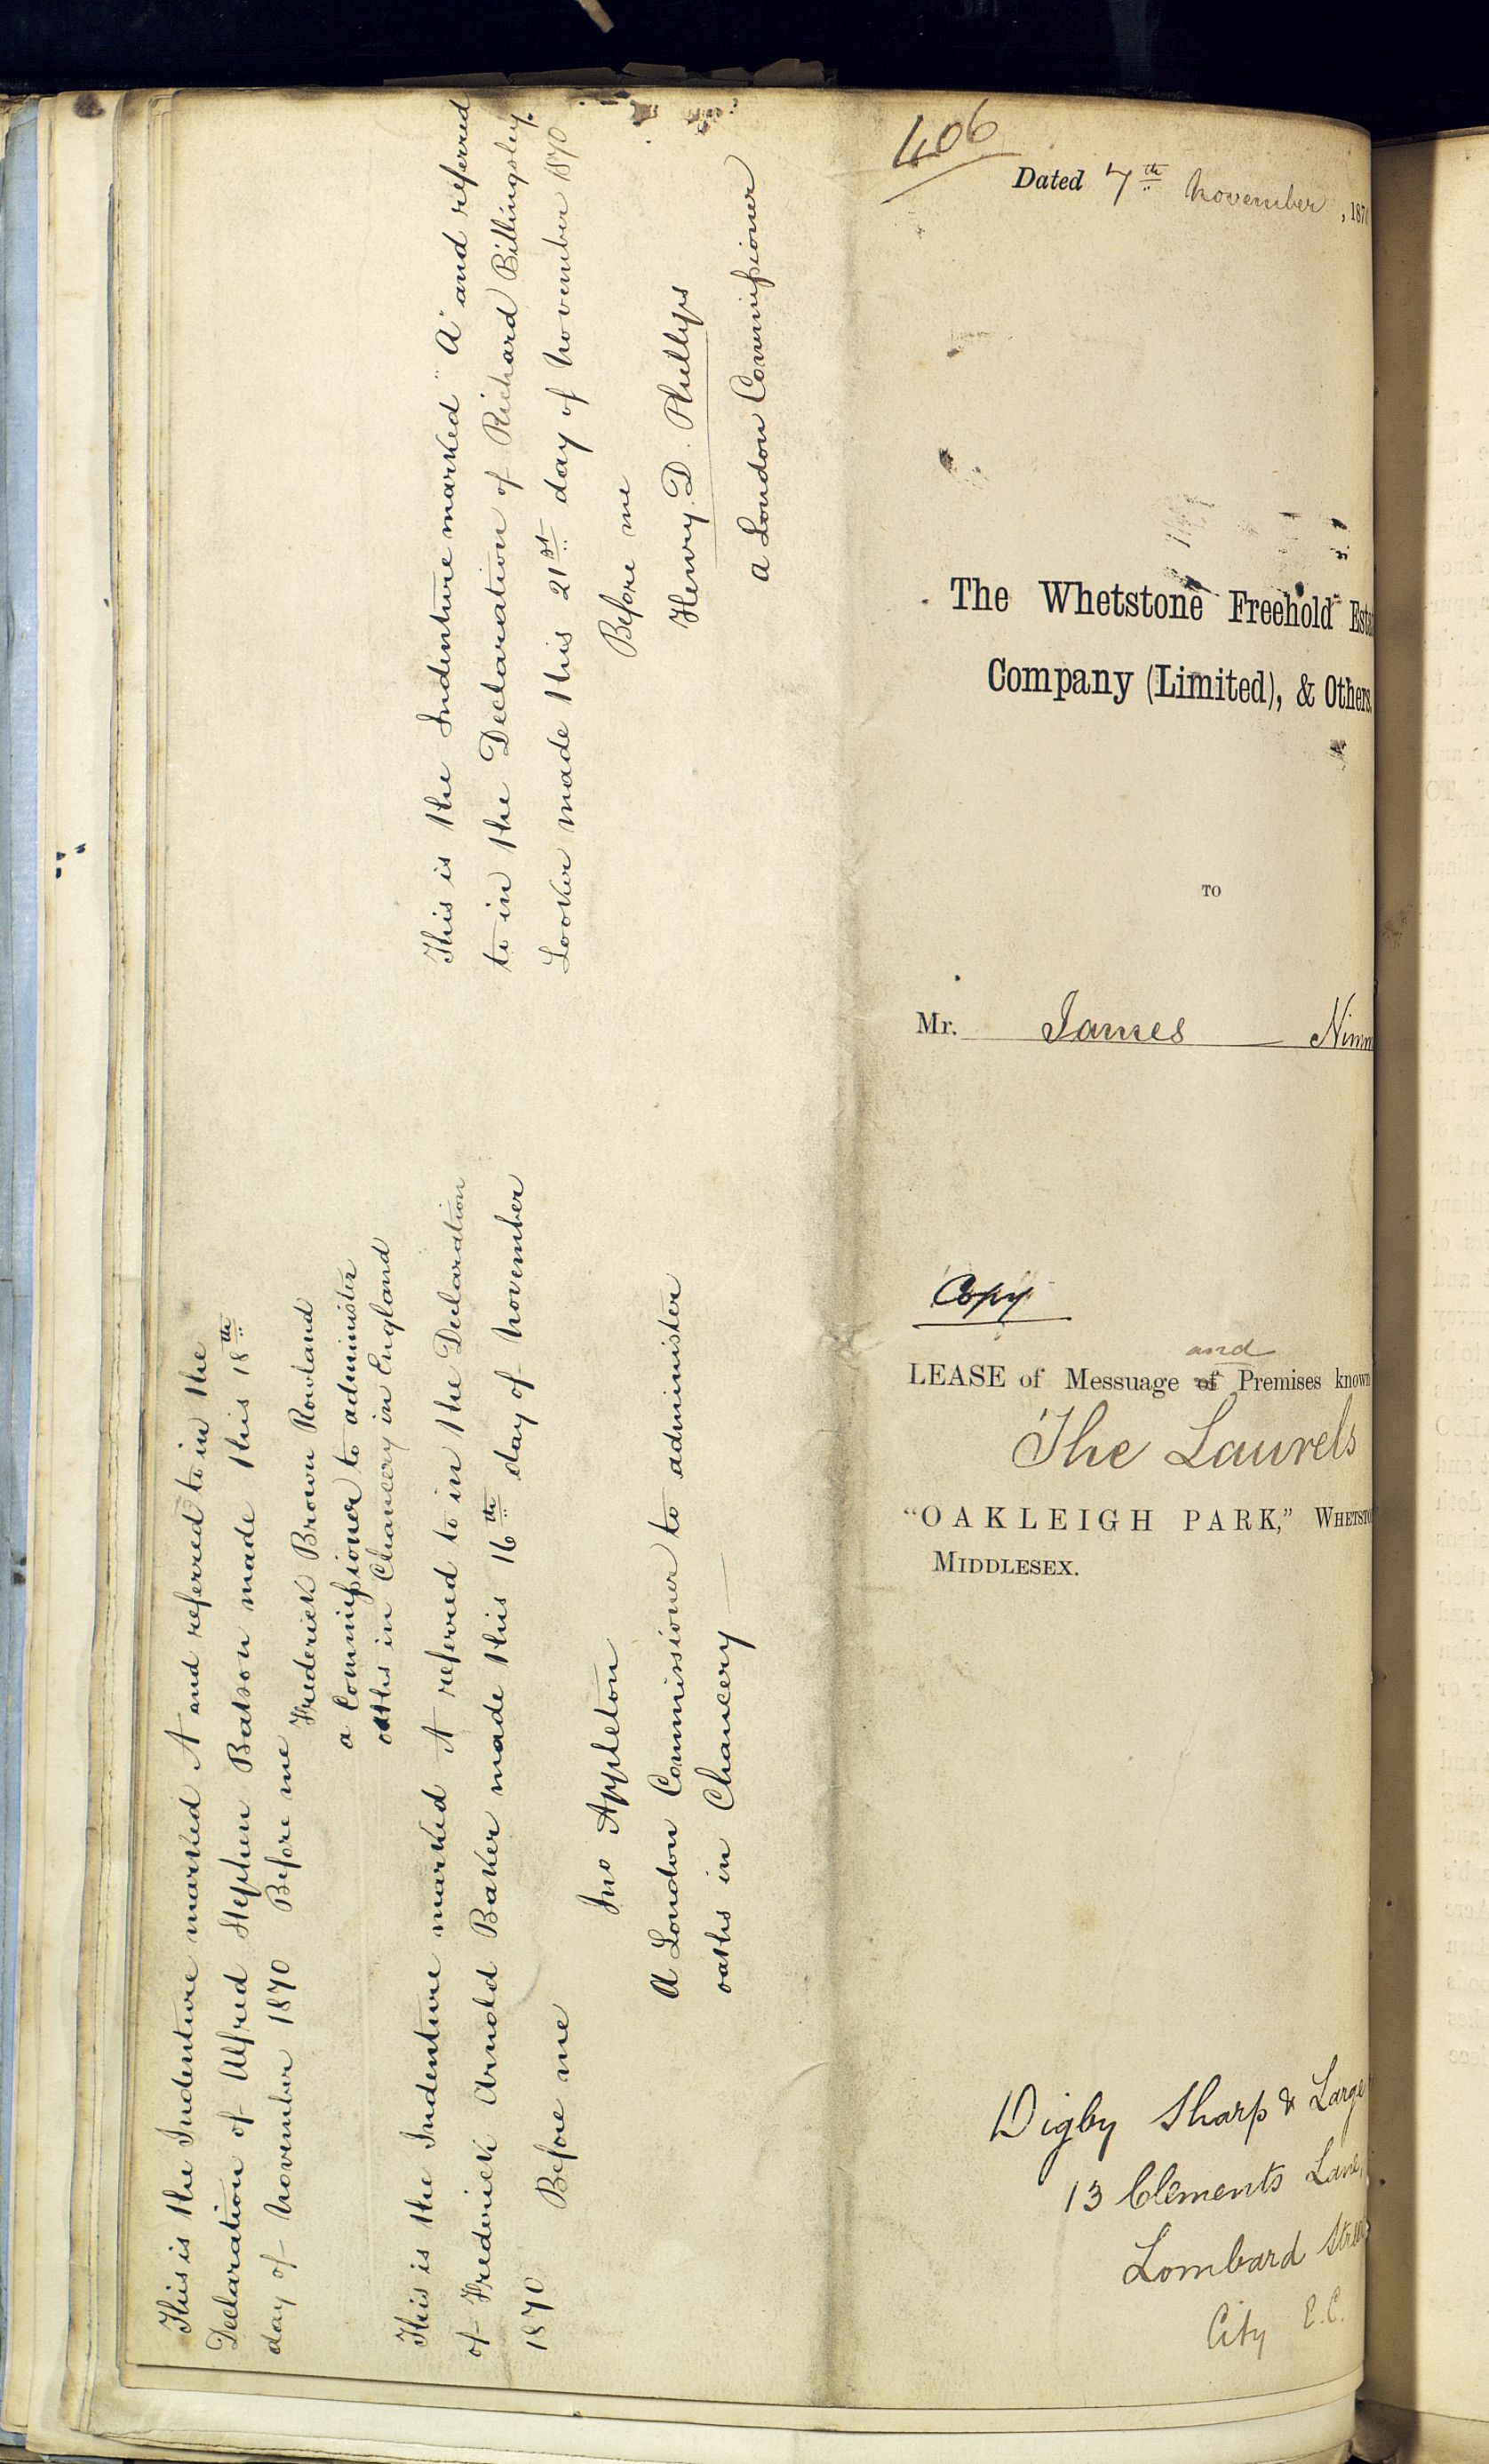 This is the Indenture marked A and referred to in the
Declaration of Alfred Stephen Batson made this 18th
day of November 1870 Before me
Frederick Brown Rowland
a Commissioner to administer
oaths in Chancery in England
This is the Indenture marked A referred to in the Declaration
of Frederick Arnold Baker made this 16th day of November
1870 Before me
Jno Appleton
A London Commissioner to administer
oaths in Chancery
This is the Indenture marked "A" and referred
to in the Declaration of Richard Billingsley
Looker made this 21st day of November 1870
Before me
Henry D. Phillips
a London Commissioner
406
Dated 7th November, 1870
The Whetstone Freehold Esta
Company (Limited), & Others.
TO
Mr. James Nimm
Copy
and
LEASE of Messuage of Premises known
The Laurels
"OAKLEIGH PARK," WHETSTO
MIDDLESEX.
Digby Sharp & Large
13 Clements Lane,
Lombard Street
City E.C.